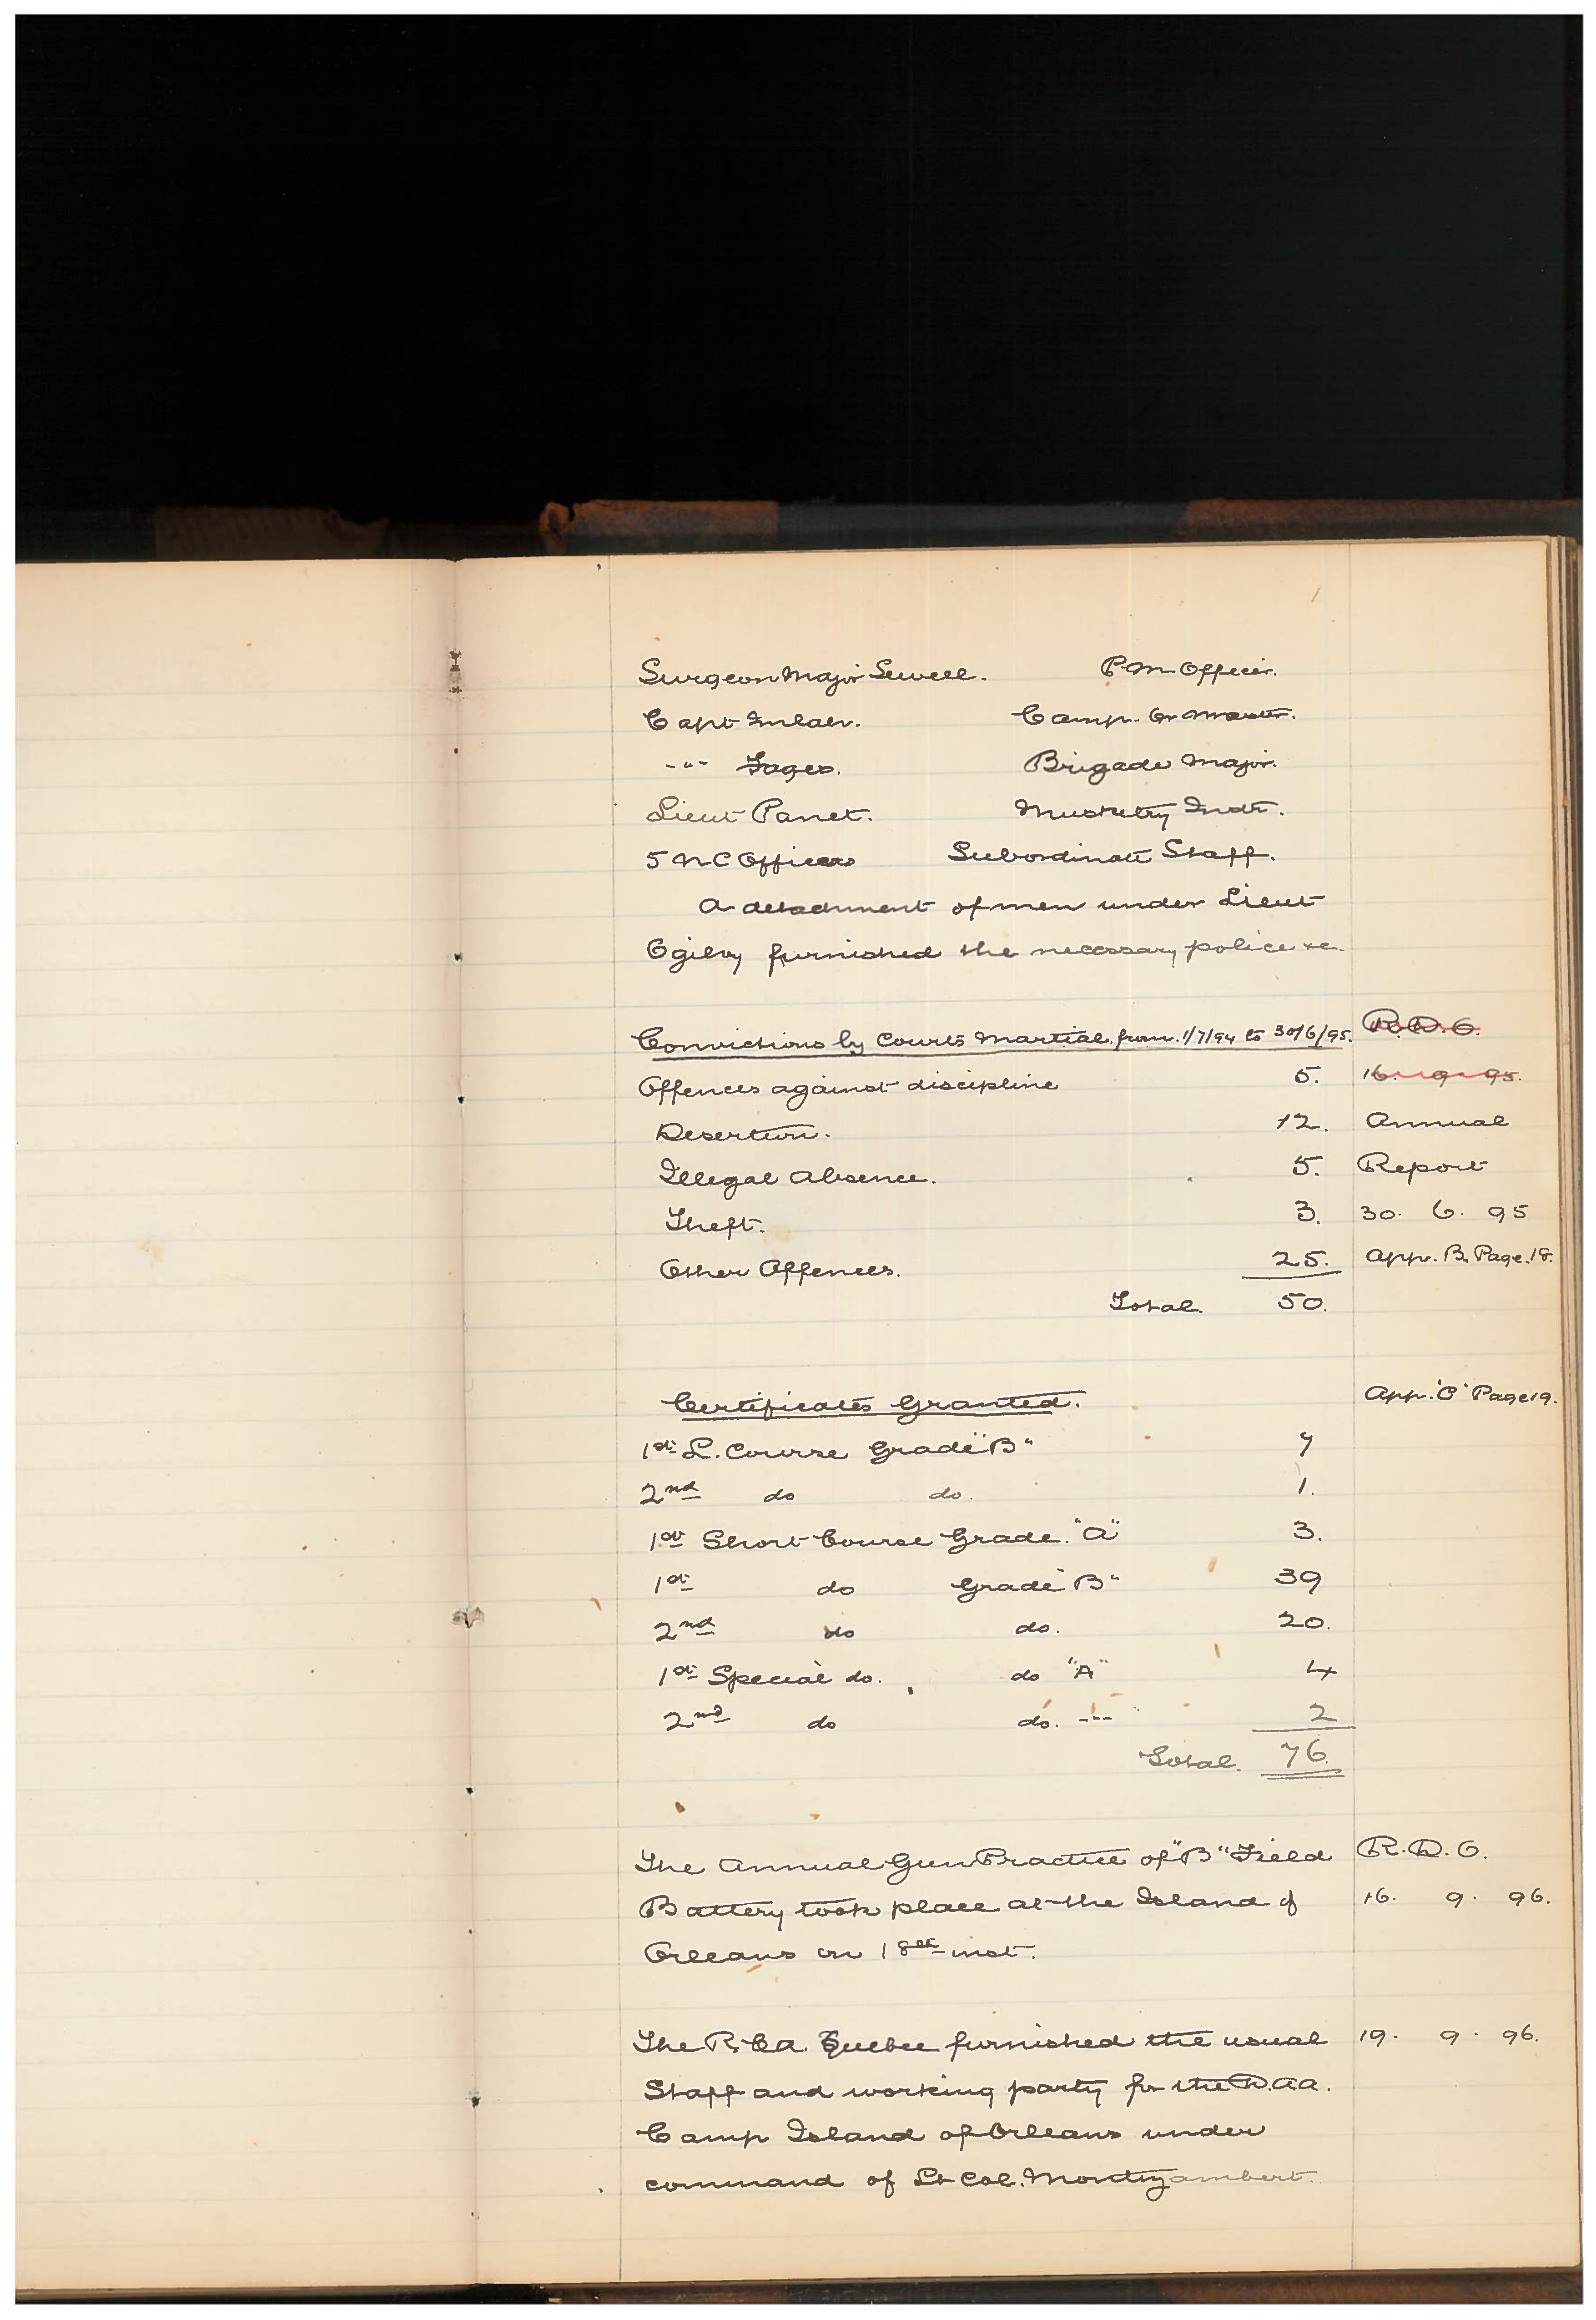 Surgeon Major Sewell. P.M. Officer.
Capt Imlah. Camp. Qr Master.
-"- Fages. Brigade Major.
Lieut Panet. Musketry Instr.
5 N C Officers Subordinate Staff.
A detachment of men under Lieut
Ogilvy furnished the necessary police &c.
Convictions by Courts Martial. from. 1/7/94 to 30/6/95. R.D.O.
Offences against discipline 5. 16. 9 95.
Desertion. 12. Annual
Illegal Absence. 5. Report
Theft. 3. 30. 6. 95
Other Offences. 25. App. B. Page. 18.
Total. 50.
Certificates Granted. App. "C" Page 19.
1st L. Course Grade "B" 7
2nd do do. 1.
1st Short Course Grade. "A" 3.
1st do Grade "B" 39
2nd do do. 20.
1st Special do. do "A" 4
2nd do do. -"- 2
Total. 76.
The Annual Gun Practice of "B" Field R.D.O.
Battery took place at the Island of 16. 9. 96.
Orleans on 18th inst.
The R.C.A. Quebec furnished the usual 19. 9. 96.
Staff and working party for the D.A.A.
Camp Island of Orleans under
command of Lt Col. Montizambert.